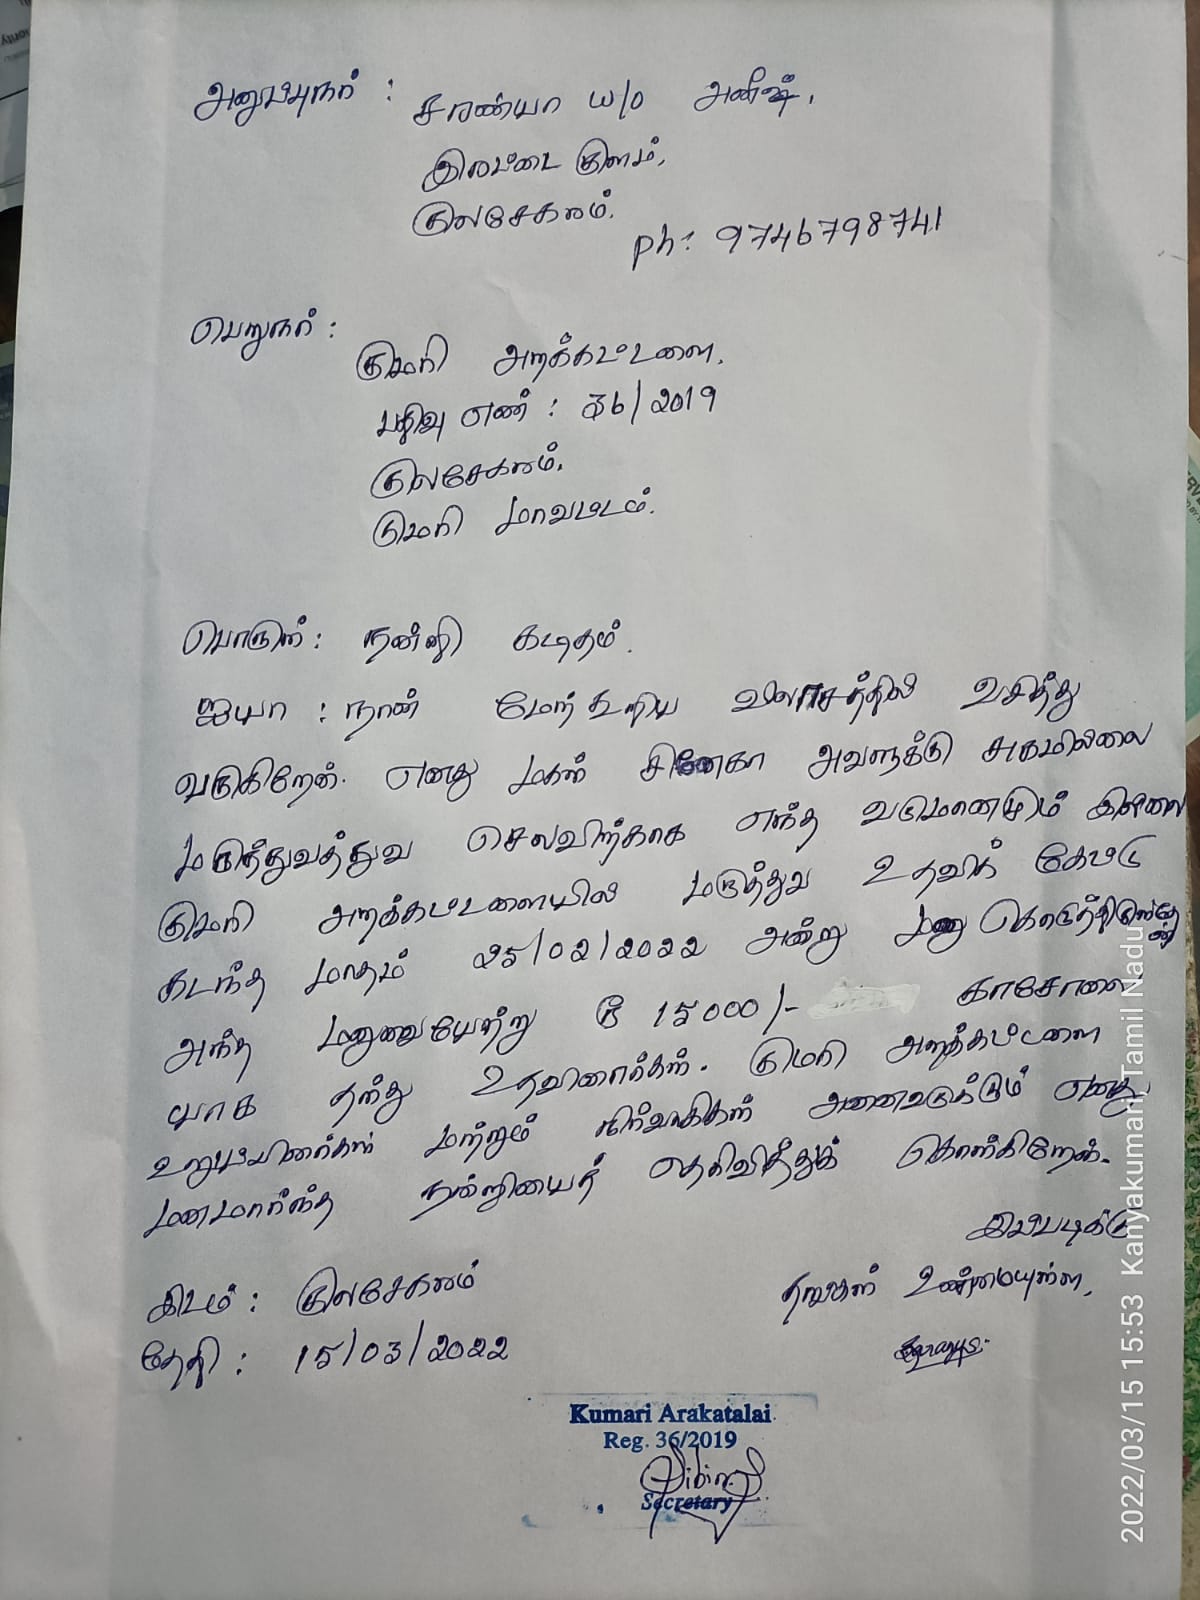 அனுப்புநர் : சரண்யா w/o அனீஷ்,
இலட்டை குளம்,
குலசேகரம்.
ph: 9746798741
பெறுநர் :
குமரி அறக்கட்டளை,
பதிவு எண் : 36/2019
குலசேகரம்,
குமரி மாவட்டம்.
பொருள் : நன்றி கடிதம்.
ஐயா : நான் மேற்கூறிய விலாசத்தில் வசித்து
வருகிறேன். எனது மகள் சினேகா அவளுக்கு சுகமில்லை
மருந்துவத்துவ செலவிற்காக எந்த வருமானமும் இல்லை
குமரி அறக்கட்டளையில் மருத்துவ உதவிக் கேட்டு
கடந்த மாதம் 25/02/2022 அன்று மனு கொடுத்திருந்தேன்
அந்த மனுவையேற்று ரூ 15000/- காசோலை
யாக தந்து உதவினார்கள். குமரி அறக்கட்டளை
உறுப்பினர்கள் மற்றும் நிர்வாகிகள் அனைவருக்கும் எனது
மனமார்ந்த நன்றியைத் தெரிவித்துக் கொள்கிறேன்.
இப்படிக்கு
இடம் : குலசேகரம்
தங்கள் உண்மையுள்ள,
தேதி : 15/03/2022
Kumari Arakatalai
Reg. 36/2019
Secretary
2022/03/15 15:53 Kanyakumari, Tamil Nadu